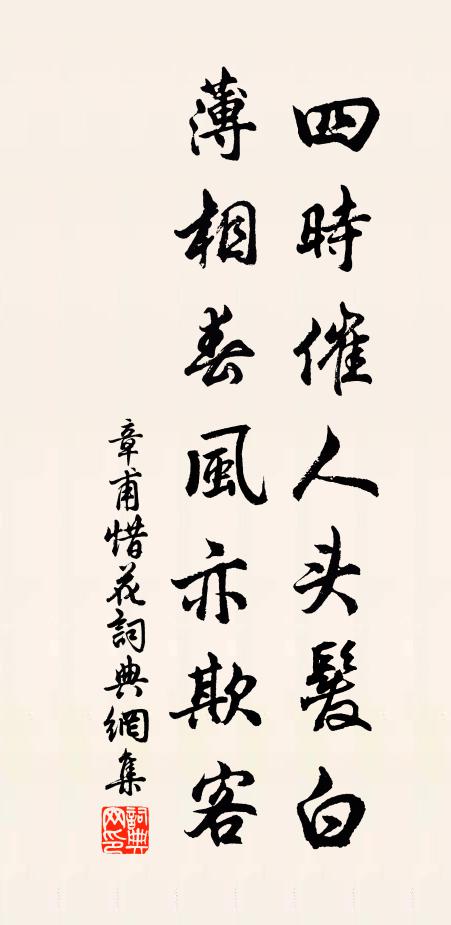 四時催人头髮白
薄相春風亦欺客
章甫惜花詞典網集
詞典網印